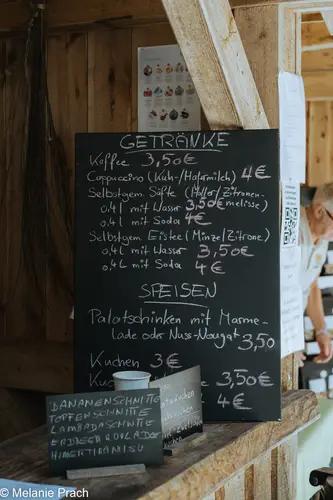 GETRÄNKE
Kaffee 3,50€
Cappuccino (Kuh-/Hafermilch) 4€
Selbstgem. Säfte (Holler/Zitronen-
melisse)
0,4 l mit Wasser 3,50€
0,4 l mit Soda 4€
Selbstgem. Eistee (Minze/Zitrone)
0,4 l mit Wasser 3,50€
0,4 l mit Soda 4€
SPEISEN
Palatschinken mit Marme-
lade oder Nuss-Nougat 3,50
Kuchen 3€
3,50€
4€
BANANENSCHNITTE
TOPFENSCHNITTE
LAMBADASCHNITTE
ERDBEER
HIMBEERTIRAMISU
© Melanie Prach